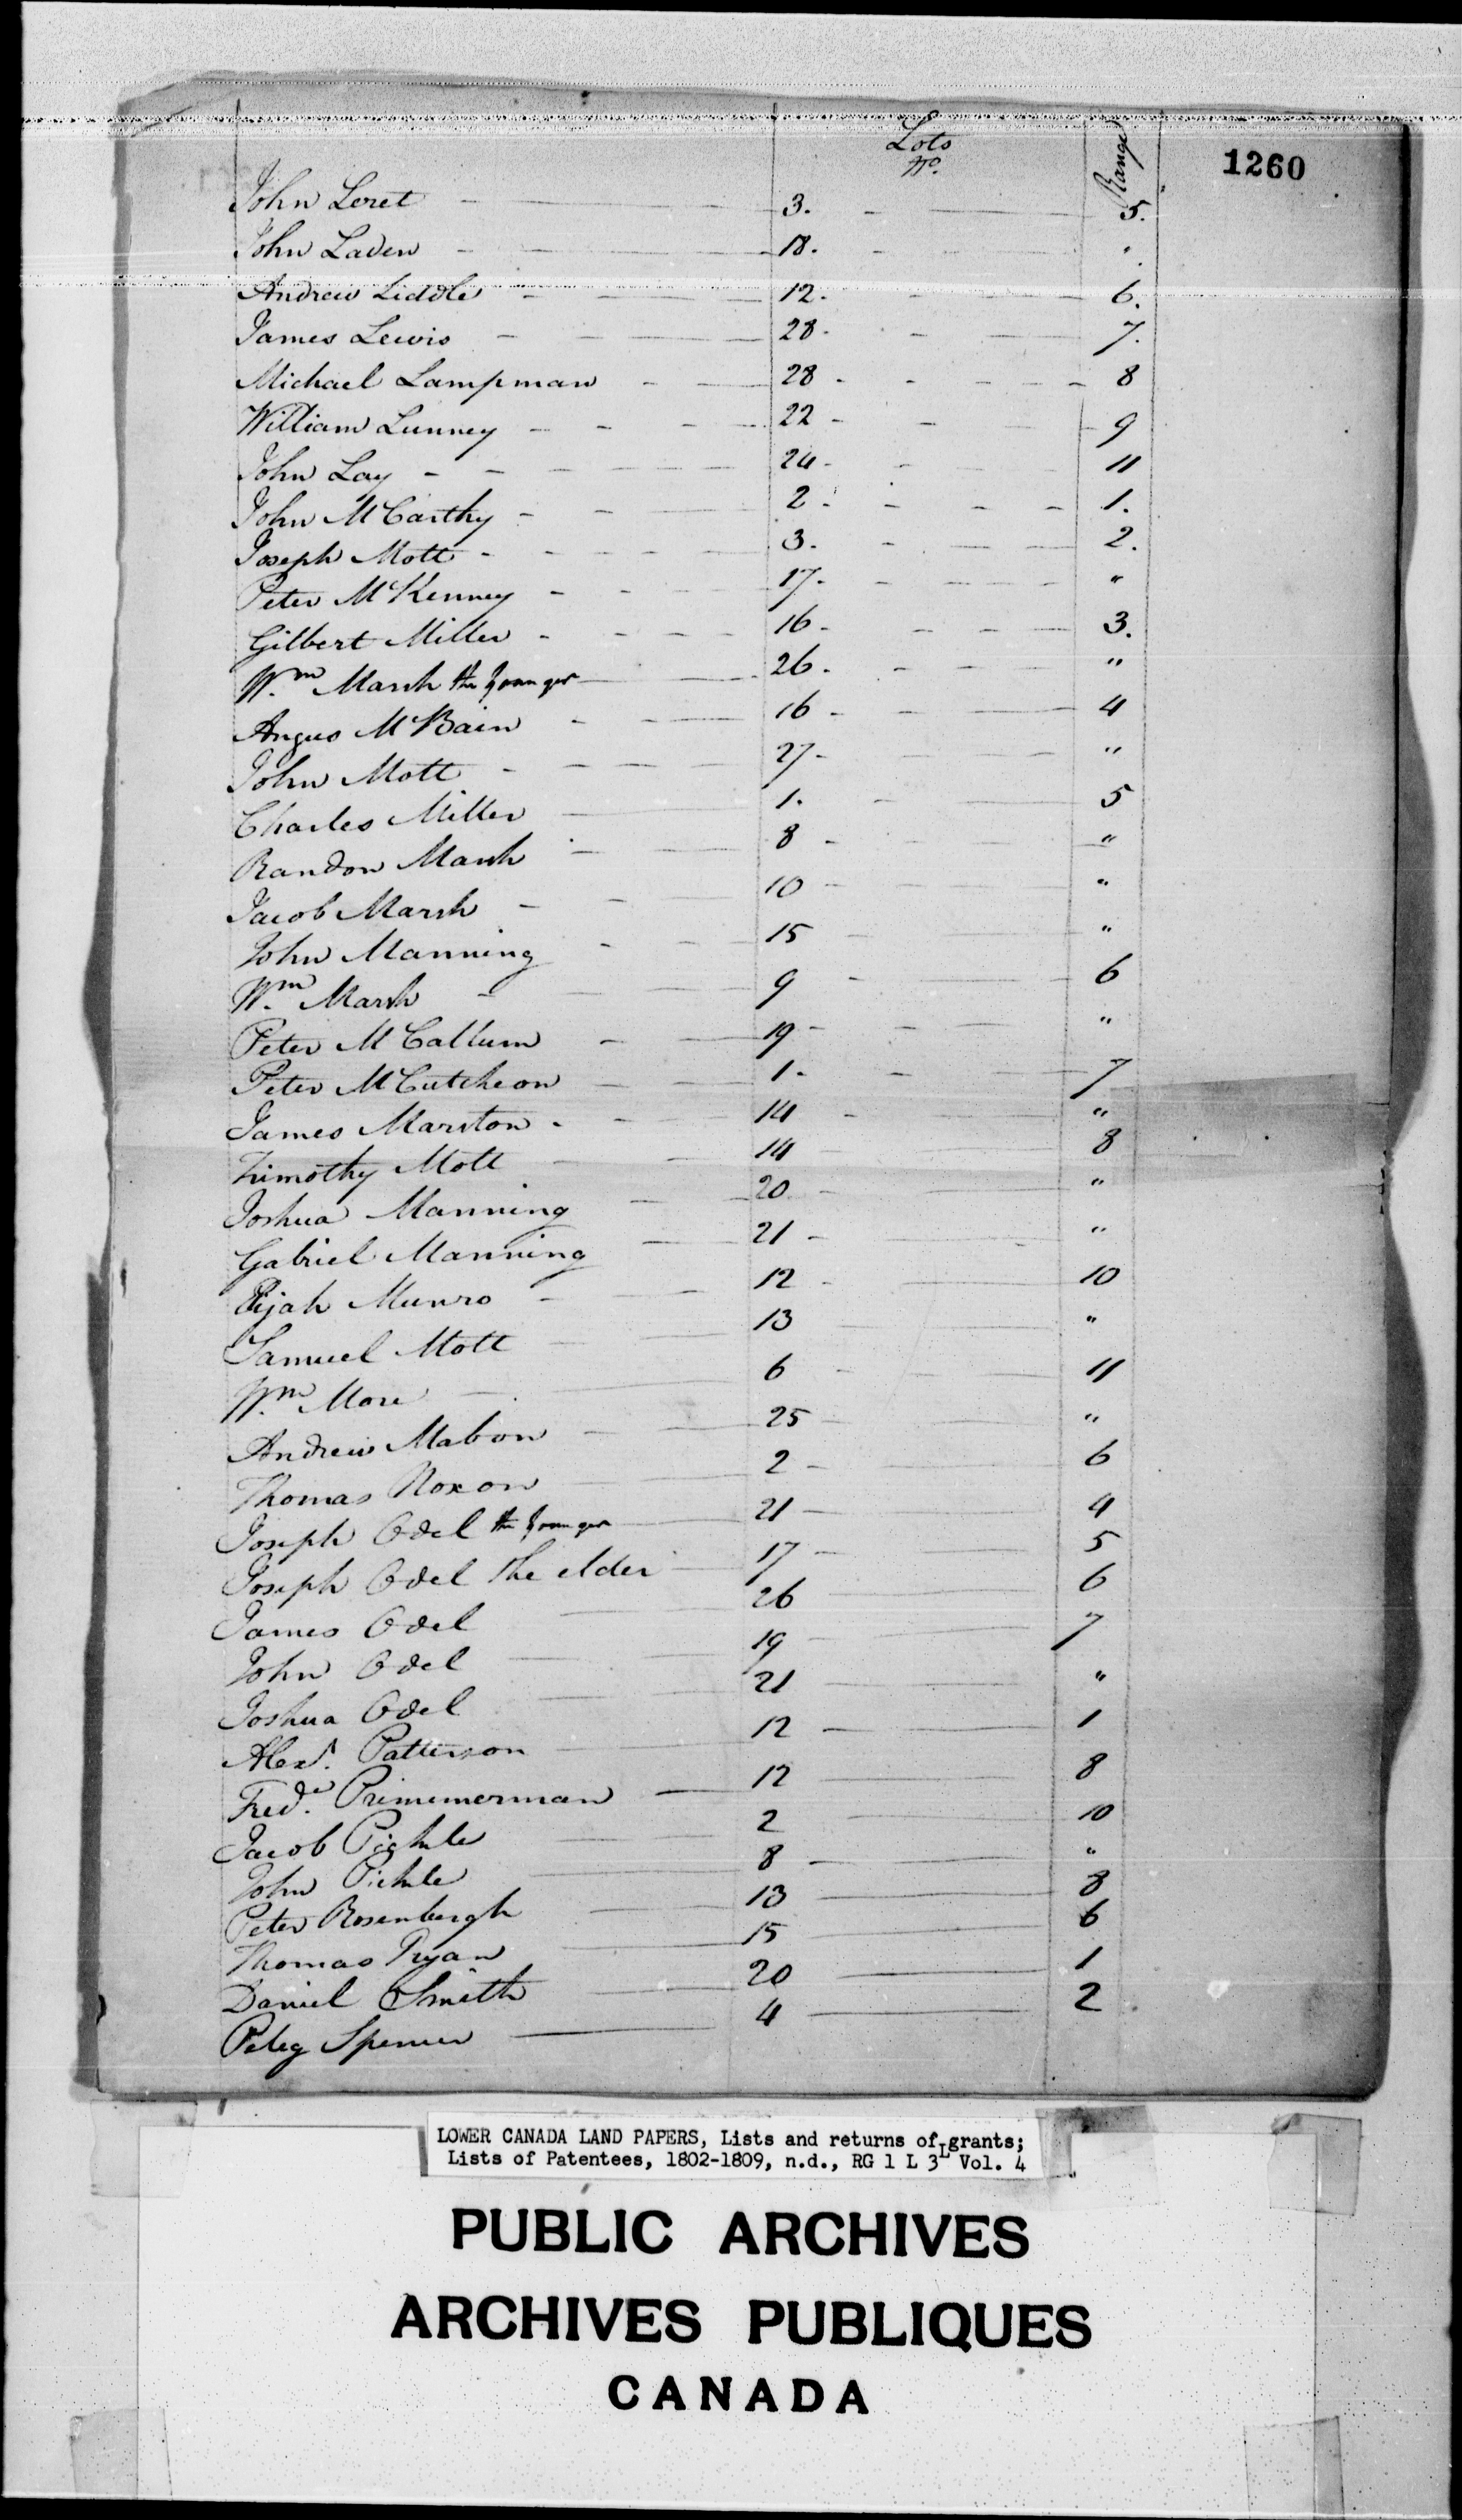 Lots
No.
Range
1260
John Loret 3. 5.
John Laden 18. "
Andrew Liddle 12. 6.
James Lewis 28. 7.
Michael Lampman 28 8
William Lunney 22 9
John Lay 24 11
John McCarthy 2 1.
Joseph Mott 3. 2.
Peter McKenney 17 "
Gilbert Miller 16 3.
Wm. Marsh the Younger 26. "
Angus McBain 16 4
John Mott 27 "
Charles Miller 1. 5
Randon Marsh 8 "
Jacob Marsh 10 "
John Manning 15 "
Wm. Marsh 9 6
Peter McCallum 19 "
Peter McCutcheon 1. 7
James Marston 14 "
Timothy Mott 14 8
Joshua Manning 20 "
Gabriel Manning 21 "
Elijah Munro 12 10
Samuel Mott 13 "
Wm. More 6 11
Andrew Mabon 25 "
Thomas Noxon 2 6
Joseph Odel the Younger 21 4
Joseph Odel the elder 17 5
James Odel 26 6
John Odel 19 7
Joshua Odel 21 "
Alexr. Patterson 12 1
Fredk. Primmerman 12 8
Jacob Pickle 2 10
John Pickle 8 "
Peter Rosenbergh 13 8
Thomas Ryan 15 6
Daniel Smith 20 1
Peleg Spencer 4 2
LOWER CANADA LAND PAPERS, Lists and returns of grants;
Lists of Patentees, 1802-1809, n.d., RG 1 L 3L Vol. 4
PUBLIC ARCHIVES
ARCHIVES PUBLIQUES
CANADA